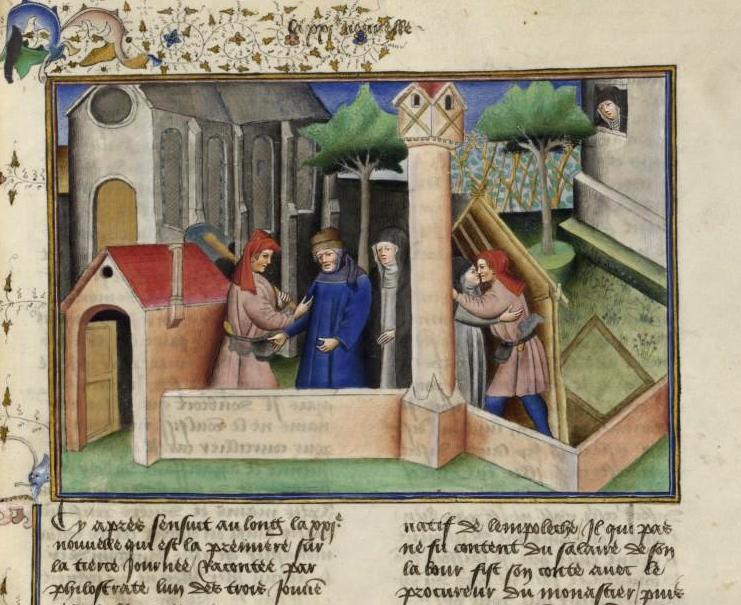 la xxi nouvelle
Cy apres sensuit au long la xxi.e
nouvelle qui est la premiere sur
la tierce Journee Racontee par
philostrate lun des trois Jouue
natif de lempoleche Il qui pas
ne fu content du salaire de son
labour fist son conte avec le
procureur du monastier / puis